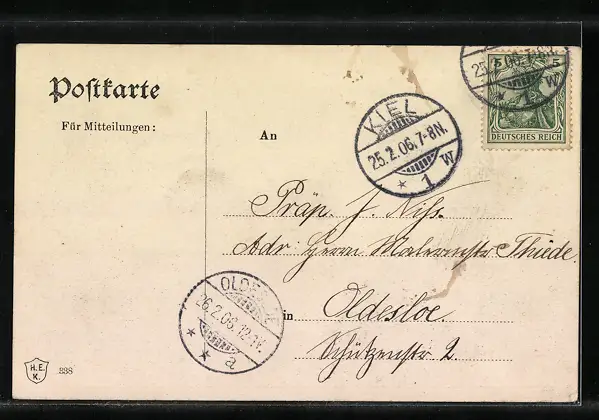 Postkarte
Für Mitteilungen:
An
5 5
DEUTSCHES REICH
25.2.06.7-8N.
* 1 W
KIEL
25.2.06.7-8N.
* 1 W
Präp. J. Niss.
Adr. Herrn Malermstr Thiede.
in Oldesloe.
Schützenstr 2.
OLDESLOE
26.2.06.12-1V.
* * a
H.E.
K.
338